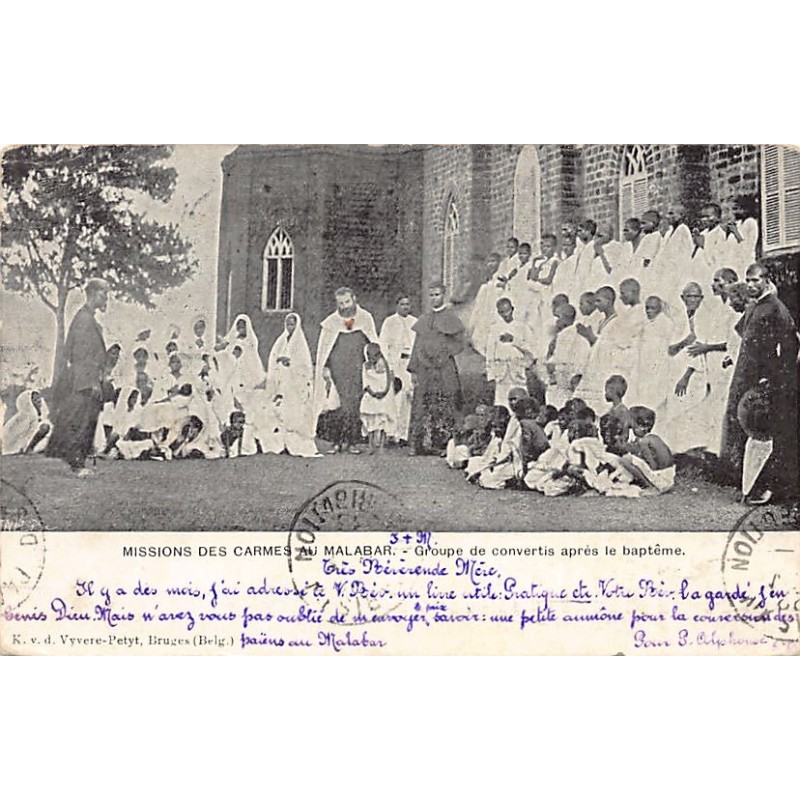 MISSIONS DES CARMES AU MALABAR. - Groupe de convertis après le baptême.
J + M.
Très Révérende Mère,
Il y a des mois, j'ai adressé à V. Rév. un livre utile: Pratique etc. Votre Rév. l'a gardé, j'en
bénis Dieu. Mais n'avez vous pas oublié de m'envoyer, le prix savoir: une petite aumône pour la conversion des
K. v. d. Vyvere-Petyt, Bruges (Belg.) païens au Malabar Pour P. Alphonse